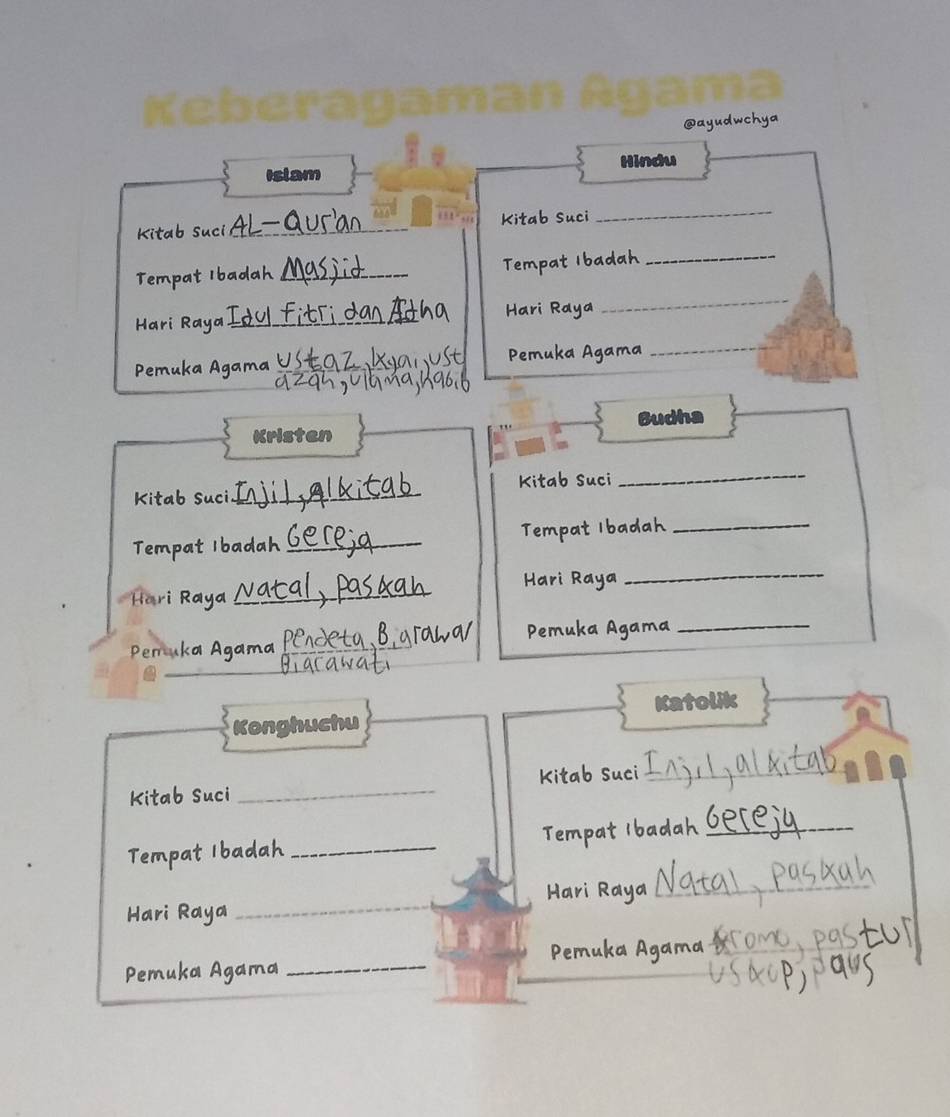 Keberagaman Agama
@ayudwchya
Islam
Kitab Suci AL-QUr'an
Tempat Ibadah Masjid
Hari Raya Idul fitri dan Adha
Pemuka Agama Ustaz, kyai, ust
azah, ulama, habib
Hindu
Kitab Suci
Tempat Ibadah
Hari Raya
Pemuka Agama
Kristen
Kitab Suci Injil, alkitab
Tempat Ibadah Gereja
Hari Raya Natal, paskah
Pemuka Agama pendeta, Biarawan
Biarawati
Budha
Kitab Suci
Tempat Ibadah
Hari Raya
Pemuka Agama
Konghuchu
Kitab Suci
Tempat Ibadah
Hari Raya
Pemuka Agama
Katolik
Kitab Suci Injil, alkitab
Tempat Ibadah Gereja
Hari Raya Natal, paskah
Pemuka Agama romo, pastur
uskup, paus